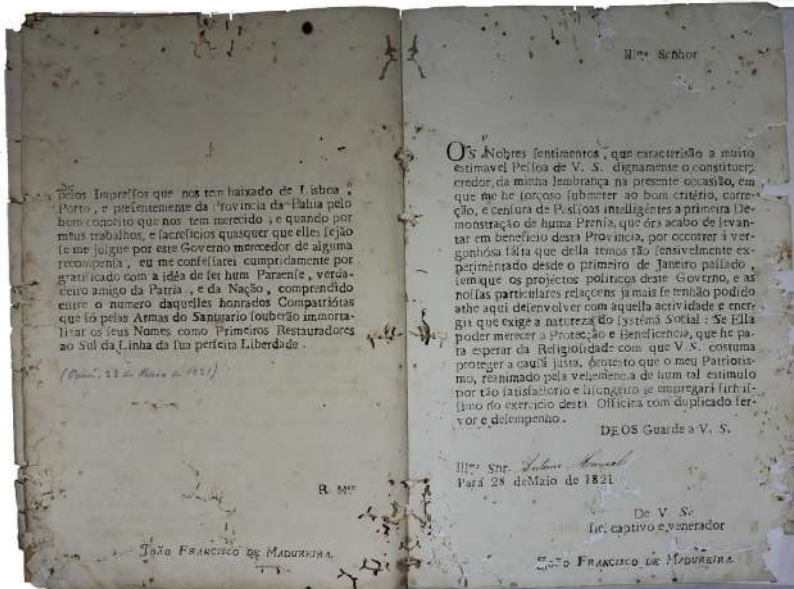 pelos Impreſſos que nos tem baixado de Lisboa,
Porto, e preſentemente da Provincia da Bahia pelo
bom conceito que nos tem merecido; e quando por
meus trabalhos, e ſacreficios quasquer que elles ſejão
ſe me julgue por este Governo merecedor de alguma
recompenſa, eu me confeſſarei cumpridamente por
gratificado com a idéa de ſer hum Paraenſe, verda-
deiro amigo da Patria, e da Nação, comprendido
entre o numero daquelles honrados Compatriótas
que ſó pelas Armas do Santuario ſouberão immorta-
lizar os ſeus Nomes como Primeiros Restauradores
ao Sul da Linha da ſua perfeita Liberdade.
(Pará, 28 de Maio de 1821)
R. Mce
JOÃO FRANCISCO DE MADUREIRA.
Illmo Senhor
OS Nobres ſentimentos, que caracteriſão a muito
estimavel Peſſoa de V. S. dignamente o constituem
credor da minha lembrança na presente occaſião, em
que me he forçoso ſubmeter ao bom critério, corre-
ção, e cenſura de Peſſoas intelligéntes a primeira De-
monstração de huma Prenſa, que óra acabo de levan-
tar em beneficio desta Provincia, por occorrer á ver-
gonhósa falta que della temos tão ſenſivelmente ex-
perimentado desde o primeiro de Janeiro paſſado,
ſem que os projectos politicos deste Governo, e as
noſſas particulares relaçoens jamais ſe tenhão podido
athe aqui deſenvolver com aquella actividade e ener-
gia que exige a natureza do ſystêma Social: Se Ella
poder merecer a Protecção e Beneficencia, que he pa-
ra esperar da Religioſidade com que V. S. costuma
proteger a cauſa justa, protesto que o meu Patriotis-
mo, reanimado pela vehemencia de hum tal estimulo
por tão ſatisfactorio e liſongeiro ſe empregará firmiſ-
ſimo no exercicio desta Officina com duplicado fer-
vor e deſempenho.
DEOS Guarde a V. S.
Illmo Snr. Antonio Manoel
Pará 28 de Maio de 1821
De V. S.
captivo e venerador
JOÃO FRANCISCO DE MADUREIRA.